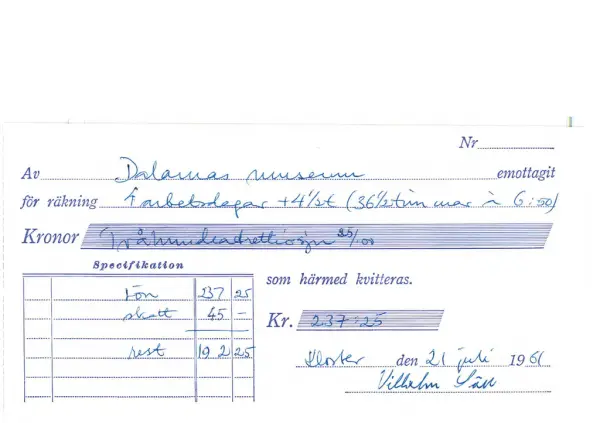 Nr
Av Dalarnas museum emottagit
för räkning 4 arbetsdagar + 4½t (36½ timmar à 6:50)
Kronor Tvåhundratrettiosju 25/00
Specifikation
som härmed kvitteras.
lön 237 25
skatt 45 -
Kr. 237:25
rest 192 25
Kloster den 21 juli 1961
Vilhelm